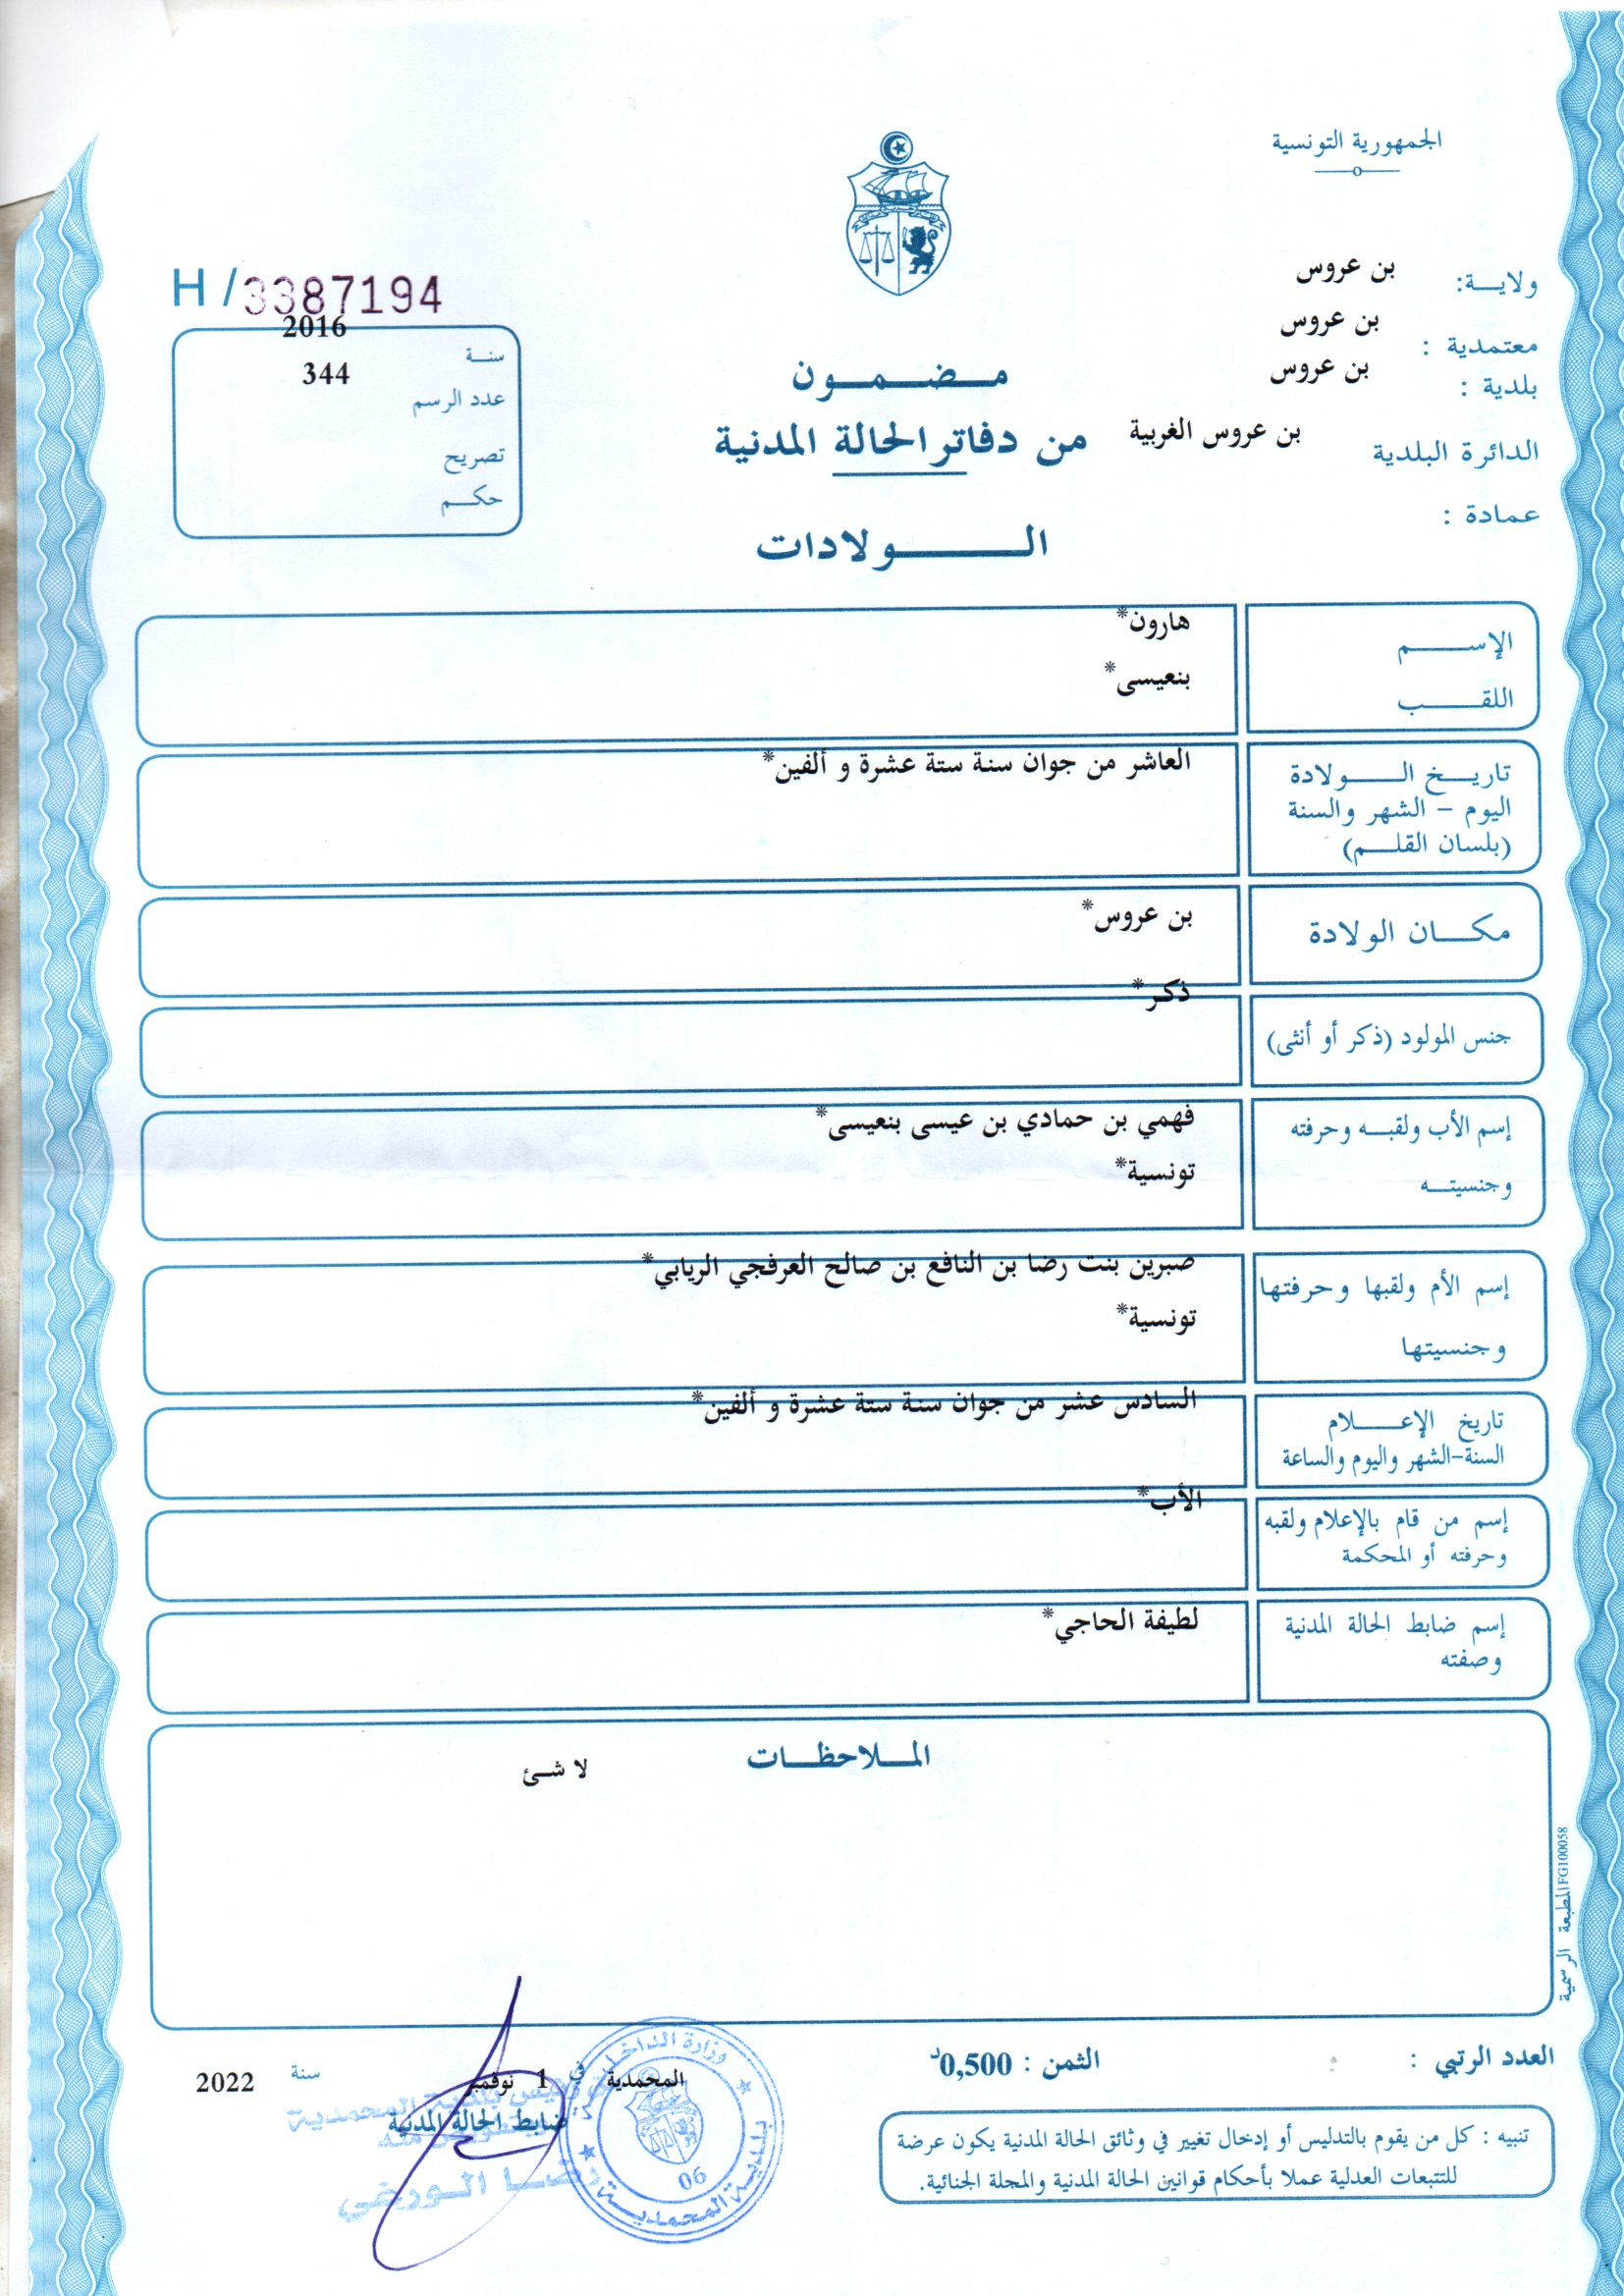 الجمهورية التونسية
ولايـــة: بن عروس
معتمدية : بن عروس
بلدية : بن عروس
الدائرة البلدية بن عروس الغربية
عمادة :
H / 3387194
سنــة 2016
عدد الرسم 344
تصريح
حكــم
مـضـمـون
من دفاتر الحالة المدنية
الـولادات
الإســـم هارون*
اللقـــب بنعيسى*
تاريــخ الــولادة العاشر من جوان سنة ستة عشرة و ألفين*
اليوم – الشهر والسنة
(بلسان القلــم)
مكــان الولادة بن عروس*
جنس المولود (ذكر أو أنثى) ذكر*
إسم الأب ولقبــه وحرفته فهمي بن حمادي بن عيسى بنعيسى*
وجنسيتــه تونسية*
إسم الأم ولقبها وحرفتها صبرين بنت رضا بن النافع بن صالح العرفجي الريابي*
وجنسيتها تونسية*
تاريخ الإعـــلام السادس عشر من جوان سنة ستة عشرة و ألفين*
السنة-الشهر واليوم والساعة
إسم من قام بالإعلام ولقبه الأب*
وحرفته أو المحكمة
إسم ضابط الحالة المدنية لطيفة الحاجي*
وصفته
المـلاحظـات
لا شئ
المطبعة الرسمية FG100058
العدد الرتبي :
الثمن : 0,500د
المحمدية في 1 نوفمبر سنة 2022
ضابط الحالة المدنية
رضـا الـورغي
وزارة الداخلية
بلدية المحمدية
06
تنبيه : كل من يقوم بالتدليس أو إدخال تغيير في وثائق الحالة المدنية يكون عرضة
للتتبعات العدلية عملا بأحكام قوانين الحالة المدنية والمجلة الجنائية.